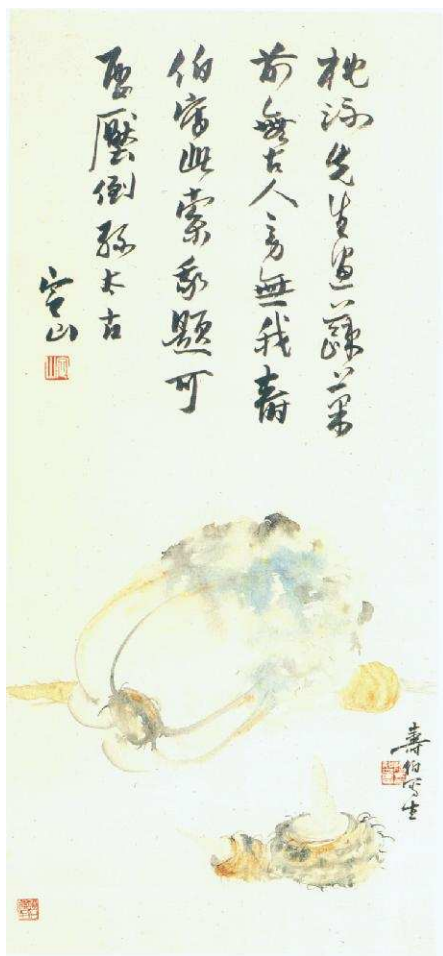 先生画蔬
前無古人旁無我壽
伯寫此索我題可
壓倒孫太古
山
壽伯寫生